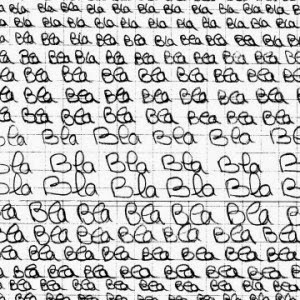 Bla Bla Bla Bla Bla Bla Bla Bla Bla Bla Bla
Bla Bla Bla Bla Bla Bla Bla Bla Bla Bla
Bla Bla Bla Bla Bla Bla Bla Bla Bla
Bla Bla Bla Bla Bla Bla Bla Bla
Bla Bla Bla Bla Bla Bla Bla
Bla Bla Bla Bla Bla Bla Bla
Bla Bla Bla Bla Bla Bla Bla
Bla Bla Bla Bla Bla Bla
Bla Bla Bla Bla Bla
Bla Bla Bla Bla Bla
Bla Bla Bla Bla Bla
Bla Bla Bla Bla Bla
Bla Bla Bla Bla Bla Bla
Bla Bla Bla Bla Bla Bla Bla
Bla Bla Bla Bla Bla Bla Bla
Bla Bla Bla Bla Bla Bla Bla
Bla Bla Bla Bla Bla Bla Bla Bla